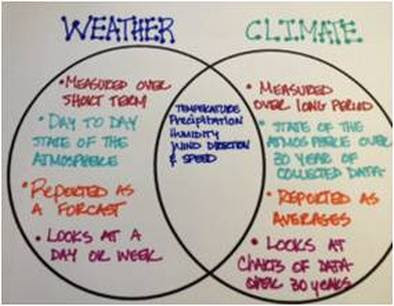 WEATHER
CLIMATE
• MEASURED OVER
SHORT TERM
• DAY TO DAY
STATE OF THE
ATMOSPHERE
• REPORTED AS
A FORCAST
• LOOKS AT A
DAY OR WEEK
TEMPERATURE
Precipitation
HUMIDITY
WIND DIRECTION
& SPEED
• MEASURED
OVER LONG PERIOD
• STATE OF THE
ATMOSPHERE OVER
30 YEAR OF
COLLECTED DATA
• REPORTED AS
AVERAGES
• LOOKS AT
CHARTS OF DATA
OVER 30 YEARS